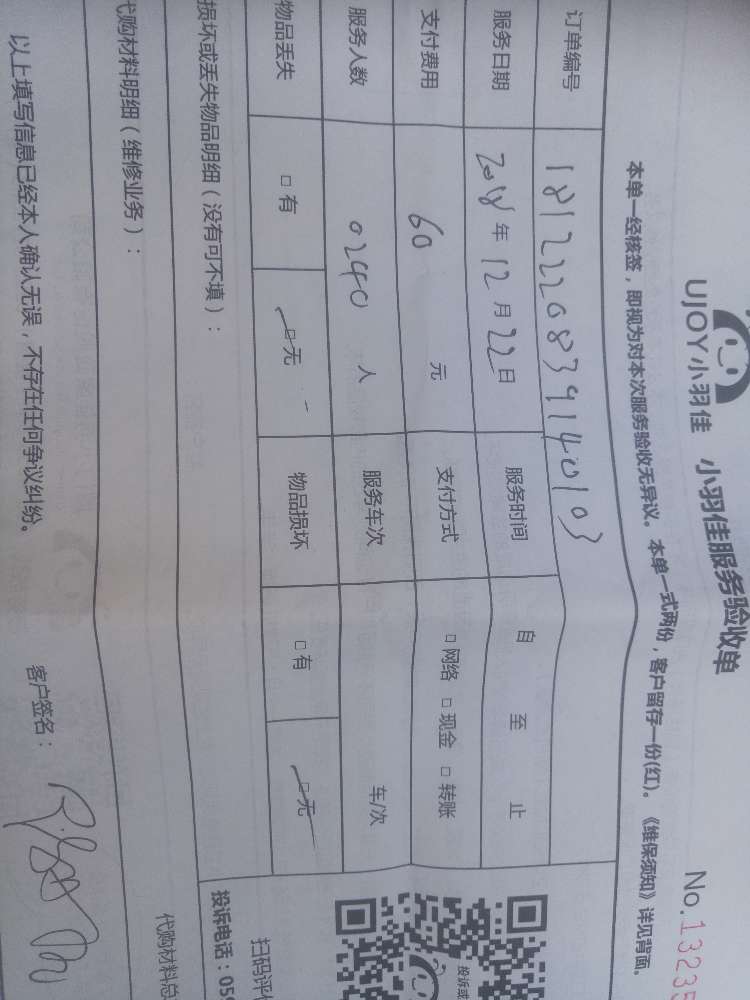 UJOY小羽佳 小羽佳服务验收单
No.13235
本单一经核签，即视为对本次服务验收无异议。本单一式两份，客户留存一份(红)。《维保须知》详见背面。
订单编号 1812220839140103
服务日期 2018年12月22日 服务时间 自 至 止
支付费用 60 元 支付方式 □网络 □现金 □转账
服务人数 0240 人 服务车次 车/次
物品丢失 □有 □无 物品损坏 □有 □无
损坏或丢失物品明细（没有可不填）：
扫码评
投诉或
投诉电话：059
代购材料明细（维修业务）：
代购材料总
以上填写信息已经本人确认无误，不存在任何争议纠纷。 客户签名：